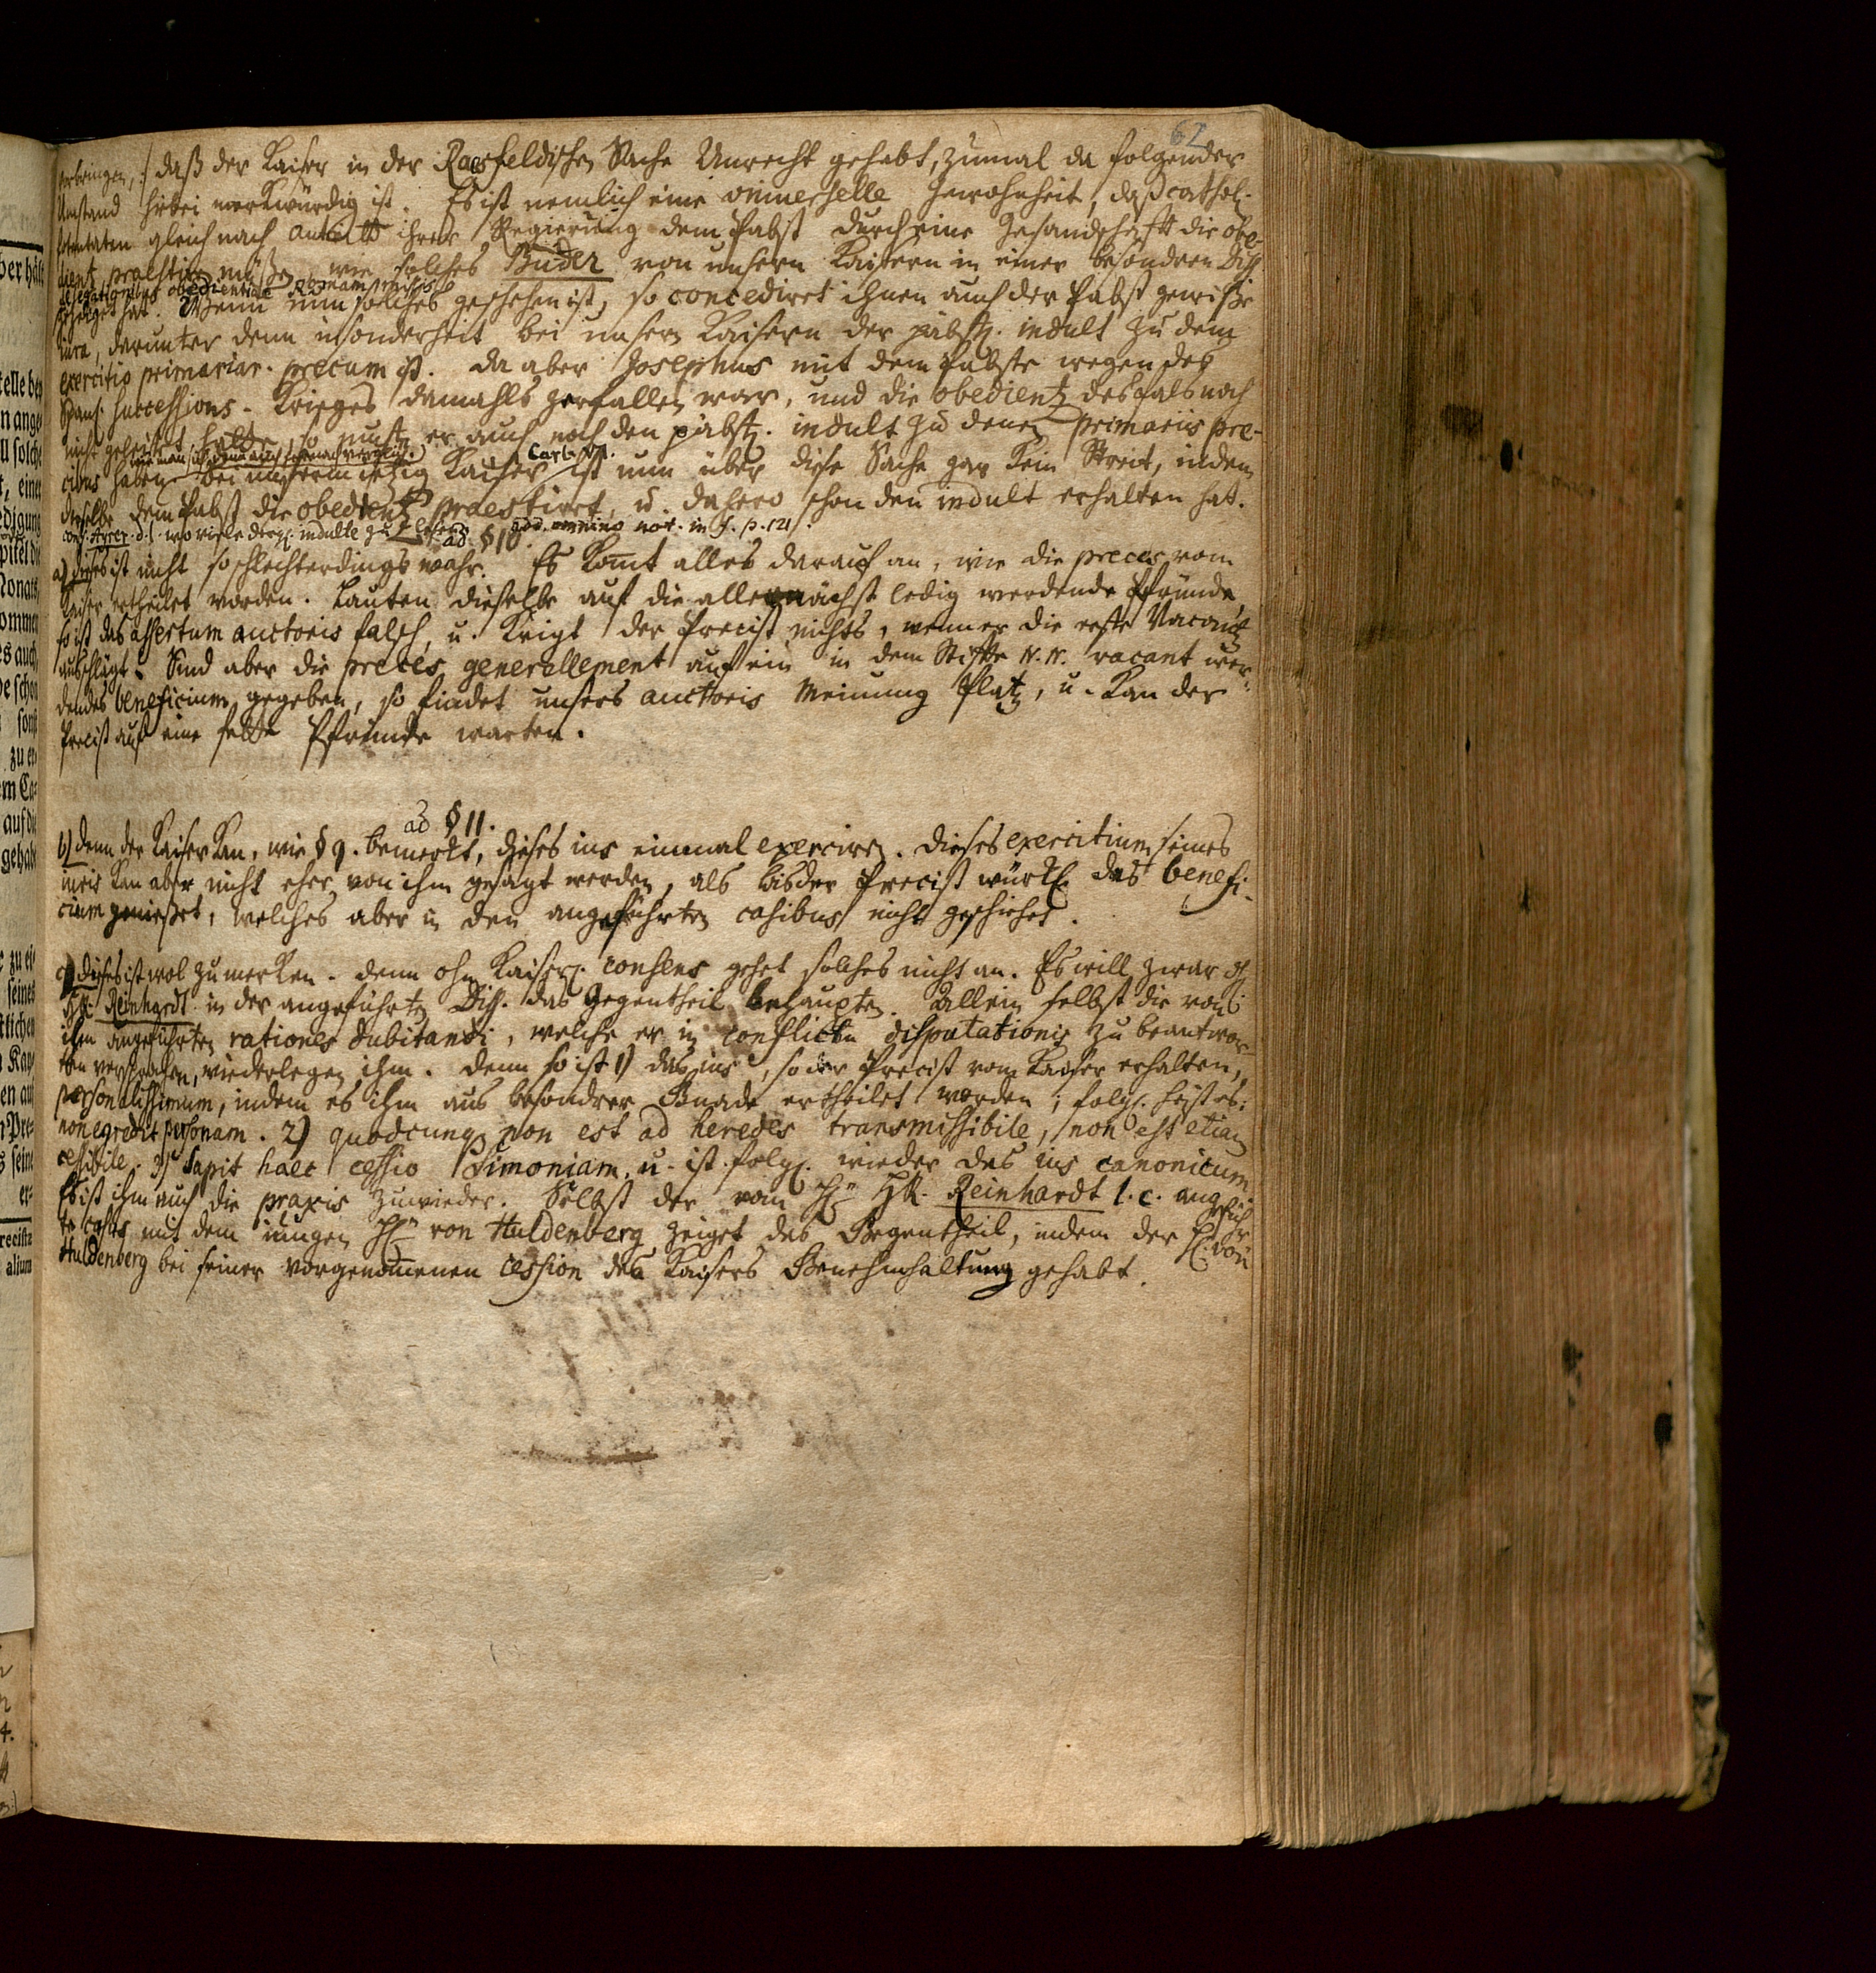 62
vorbringen, :/ daß der Kaiser in der Raesfeldischen Sache Unrecht gehabt, zumal da folgender
Umstand hiebei merkwürdig ist. Es ist nemlich eine vniuerselle Gewohnheit, daß cathol.
Potentaten gleich nach Antritt ihrer Regierung dem Pabst durch eine Gesandschafft die obe-
dientz praestiren müßen, wie solches Buder von unsern Kaisern in einer besondren Diss.
de legationibus obedientiae Romam missis
gezeiget hat. Wenn nun solches geschehen ist, so concediret ihnen auch der Pabst gewiße
iura, darunter denn insonderheit bei unsern Kaisern der päbstl. indult zu dem
exercitio primariar. precum ist. Da aber Josephus mit dem Pabste wegen des
Span. Successions-Krieges damahls zerfallen war, und die obedientz desfals noch
nicht geleistet hatte, so muste er auch noch den päbstl. indult zu denen primariis pre-
wie man sich denn auch hernach verglich.
Carl VII.
cibus haben. Bei unserm ietzig Kaiser ist nun über diese Sache gar kein Streit, indem
derselbe dem Pabst die obedientz praestiret, u. dahero schon den indult erhalten hat.
conf. d. l. wo viele dergl. indulte zu lesen. add. omnino not. in f. p. 121.
ad §10.
a) dieses ist nicht so schlechterdings wahr. Es komt alles darauf an, wie die preces vom
Kaiser ertheilet worden. Lauten dieselbe auf die allernächst ledig werdende Pfründe,
so ist das assertum auctoris falsch, u. krigt der Precist nichts, wenn er die erste Vacantz
ausschlägt. Sind aber die preces generallement auf ein in dem Stiffte N.N. vacant wer-
dendes beneficium gegeben, so findet unsers auctoris Meinung Platz, u. kan der
Precist auf eine fette Pfründe warten.
ad §11.
b) Denn der Kaiser kan, wie §9. bemerkt, dieses ius einmal exerciren. Dieses exercitium seines
iuris kan aber nicht eher von ihm gesagt werden, als bis der Precist würkl. das benefi-
cium genießet, welches aber in den angeführten casibus nicht geschiehet.
c) dieses ist wol zu merken. Denn ohn Kaiserl. consens gehet solches nicht an. Es will zwar H.
HR. Reinhardt in der angeführten Diss. das Gegentheil behaupten. Allein selbst die von
ihm angeführten rationes dubitandi, welche er in conflictu disputationis zu beantwor-
ten versprochen, wiederlegen ihm. Denn so ist 1) das ius, so der Precist vom Kaiser erhalten,
personalissimum, indem es ihm aus besondrer Gnade ertheilet worden; folgl. heist es:
non egredit personam. 2) quodcunq non est ad heredes transmissibile, non est etiam
cessibile. 3) Sapit haec cessio Simoniam, u. ist folgl. wieder das ius canonicum
Es ist ihm auch die praxis zuwieder. Selbst der vom H. HR. Reinhardt l.c. angefüh-
te casus mit dem iungen H. von Huldenberg zeiget das Gegentheil, indem der H. von
Huldenberg bei seiner vorgenommenen cession des Kaisers Genehmhaltung gehabt.